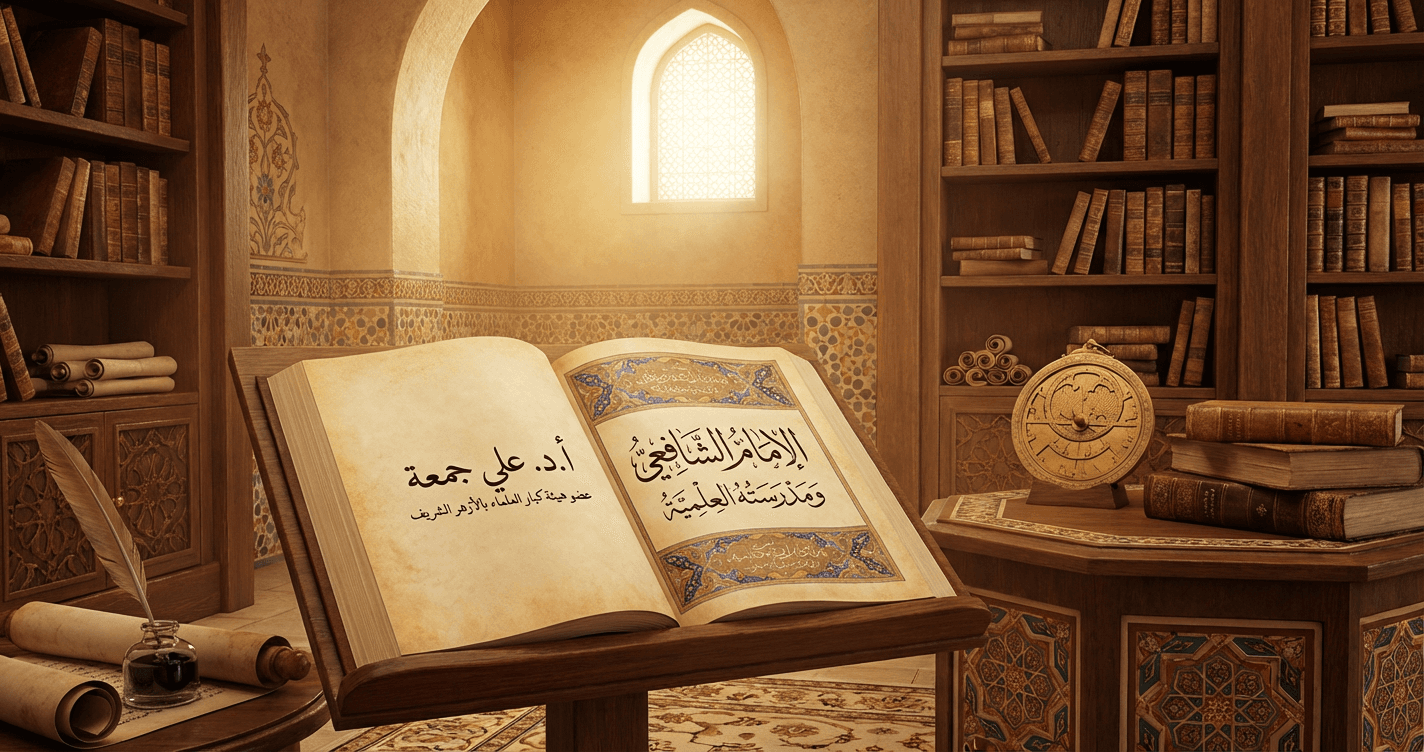 الإِمَامُ الشَّافِعِيُّ
وَمَدْرَسَتُهُ العِلْمِيَّةُ
أ.د. علي جمعة
عضو هيئة كبار العلماء بالأزهر الشريف